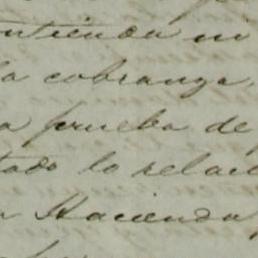 ntienda ni
la cobranza,
a prueba de
tado lo relaci
a Hacienda,